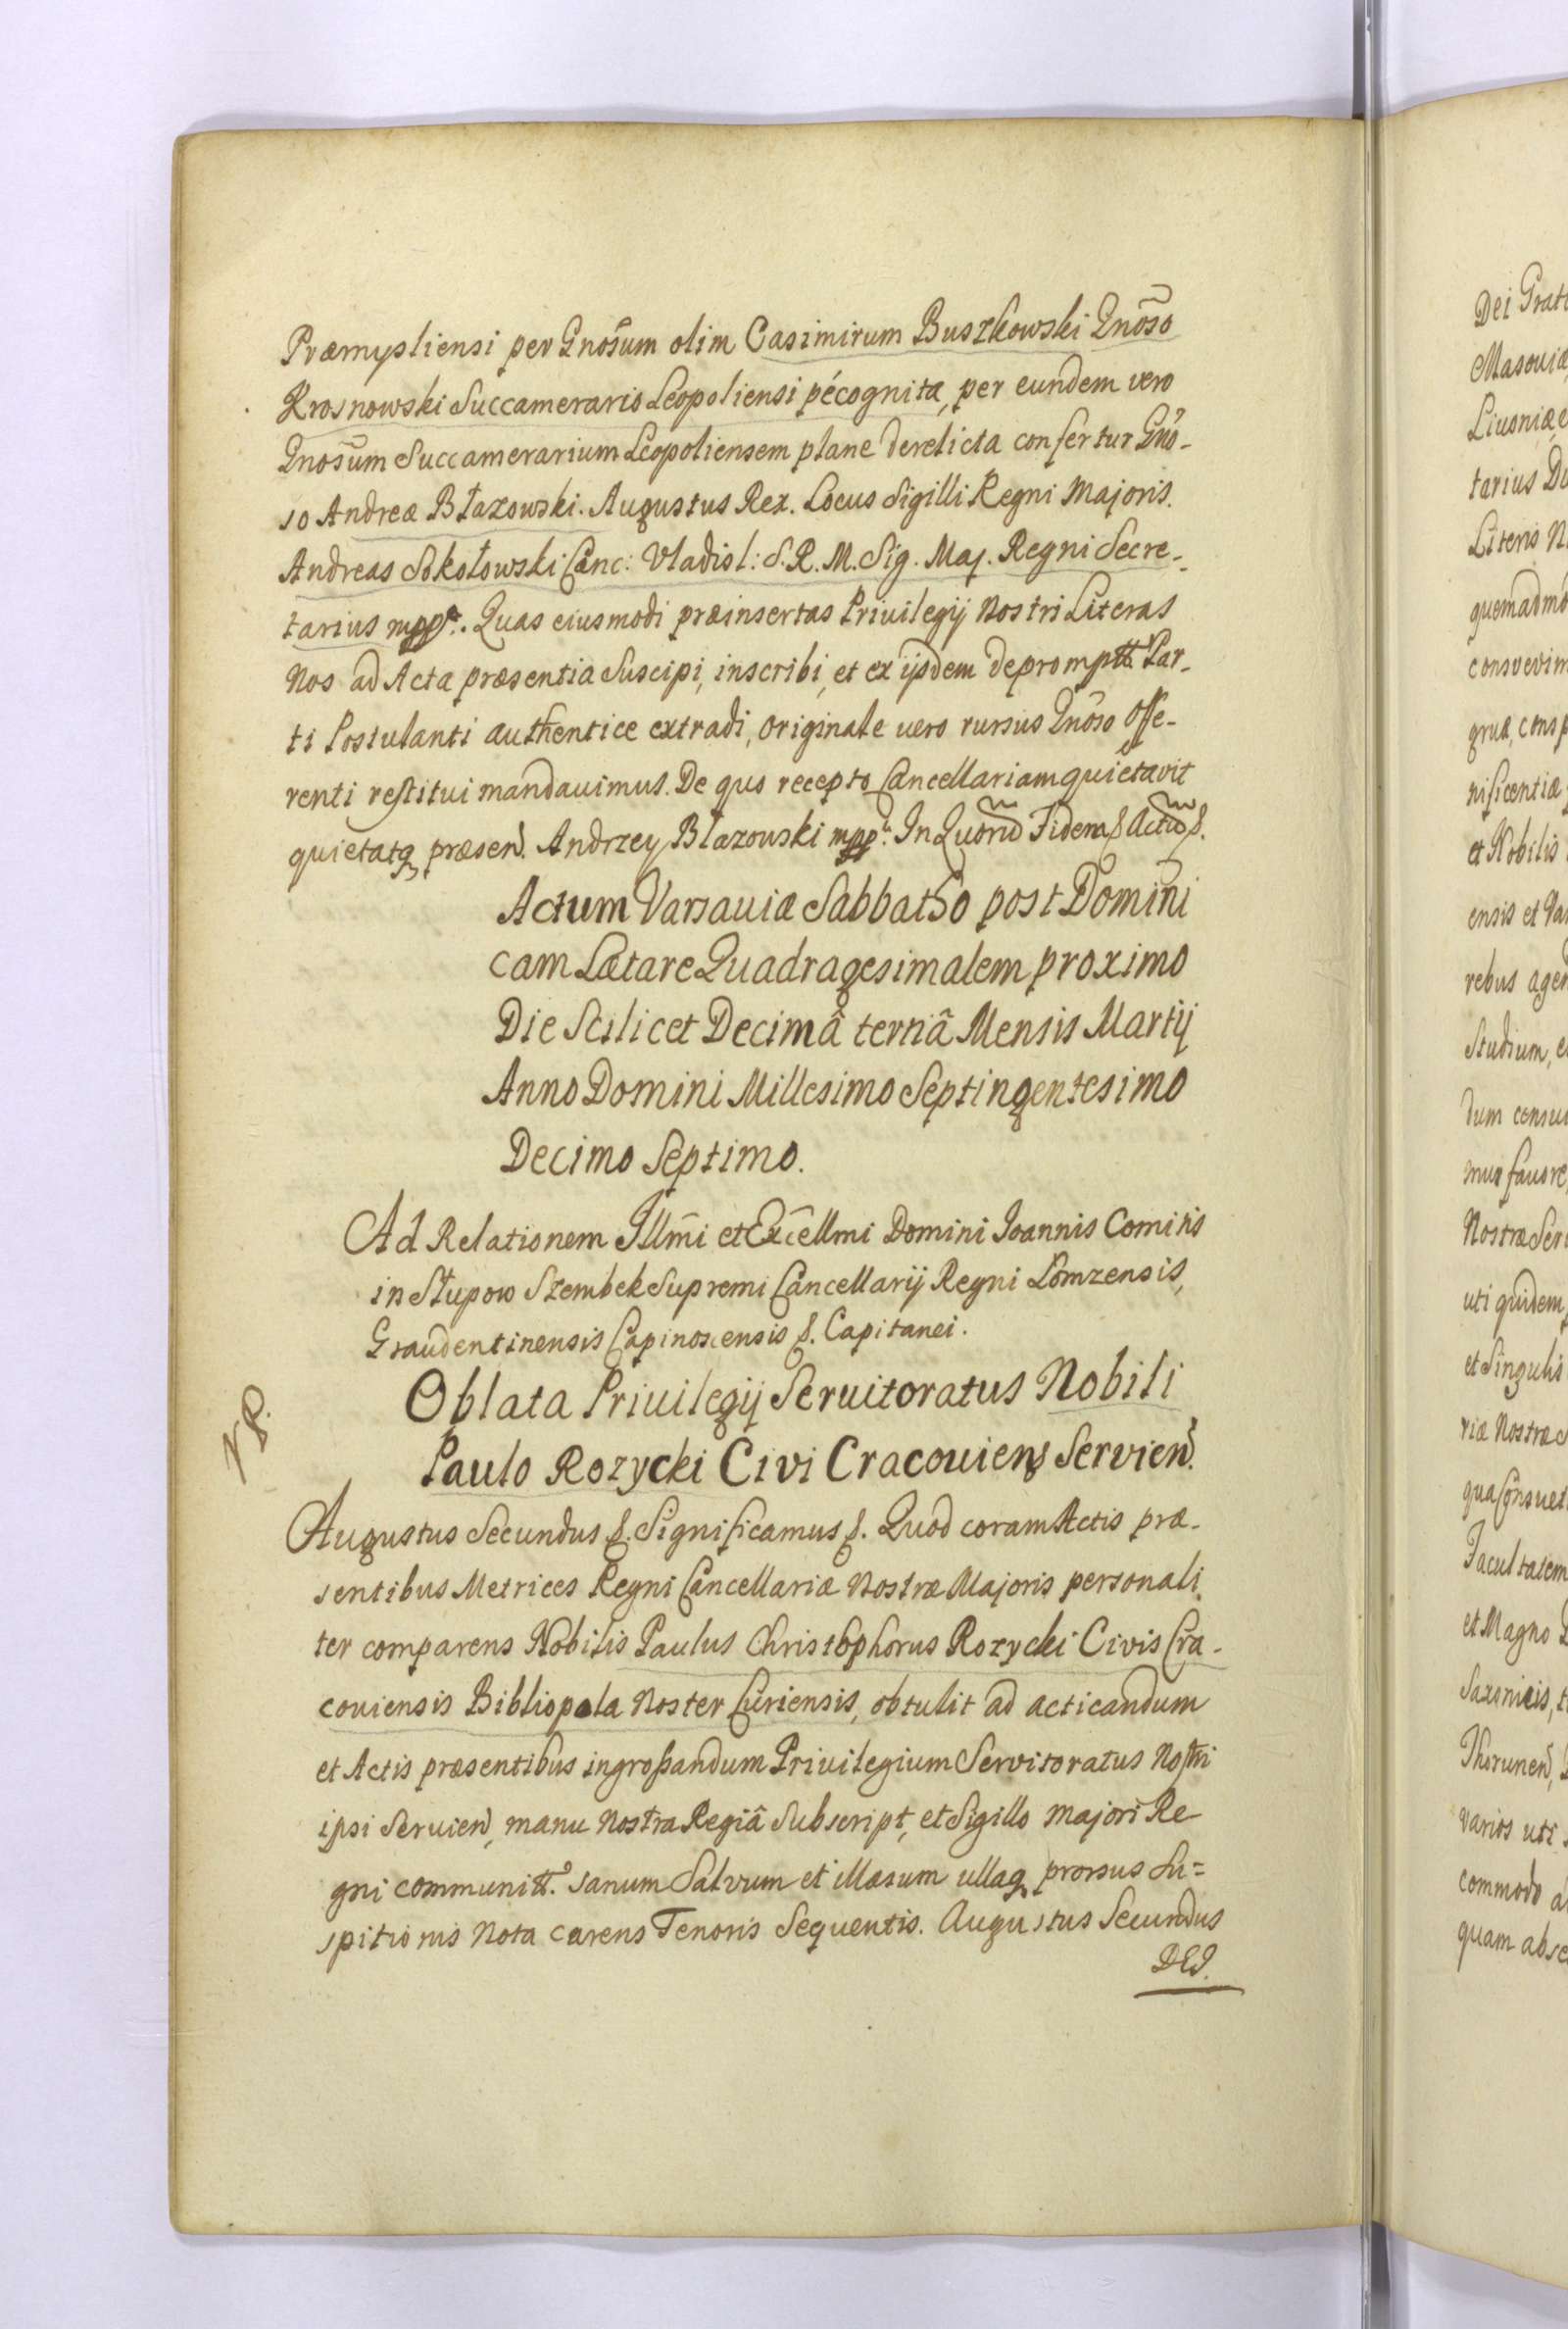 Præmysliensi per Gnosum olim Casimirum Buszkowski Gnoso
Krosnowski Succamerario Leopoliensi pécognita, per eundem vero
Gnosum Succamerarium Leopoliensem plane derelicta confertur Gno-
so Andreæ Błazowski. Augustus Rex. Locus Sigilli Regni Majoris.
Andreas Sokołowski Canc: Vladisl: S. R. M. Sig. Maj. Regni Secre-
tarius mpp. Quas eiusmodi præinsertas Priuilegij Nostri Literas
Nos ad Acta præsentia Suscipi, inscribi, et ex ijsdem depromptt Par-
ti Postulanti authentice extradi, Originale uero rursus Gnoso Offe-
renti restitui mandauimus. De quo recepto Cancellariam quietavit
quietatq præsen. Andrzey Błazowski mpp. In Quoru Fidem &. Actu &.
Actum Varsauiæ Sabbatho post Domini
cam Lætare Quadragesimalem proximo
Die Scilicet Decimâ tertiâ Mensis Martij
Anno Domini Millesimo Septingentesimo
Decimo Septimo.
Ad Relationem Illmi et Excellmi Domini Ioannis Comitis
in Słupow Szembek Supremi Cancellarij Regni Łomzensis,
Graudentinensis Capinoscensis &. Capitanei.
NP.
Oblata Priuilegij Seruitoratus Nobili
Paulo Rozycki Civi Cracouiens Servien.
Augustus Secundus &. Significamus &. Quod coram Actis præ-
sentibus Metrices Regni Cancellariæ Nostræ Majoris personali
ter comparens Nobilis Paulus Christophorus Rozycki Civis Cra-
couiensis Bibliopola Noster Curiensis, obtulit ad acticandum
et Actis præsentibus ingrossandum Priuilegium Servitoratus Nostri
ipsi Seruien, manu Nostra Regiâ Subscript, et Sigillo Majori Re
gni communitt. sanum Salvum et illæsum ullaq prorsus Su=
spitionis Nota carens Tenoris Sequentis. Augustus Secundus
DEI.
Dei Grat
Masouiæ
Liuoniæ
tarius Du
Literis N
quemadmo
consvevim
grua, consp
nificentiæ
et Nobilis
ensis et Va
rebus agen
Studium, e
dum consue
mua fauore
Nostræ Ser
uti quidem
et Singulis
riæ Nostræ
qua Consuet
Facultatem
et Magno
Saxonicis, t
Thorunen,
varios uti
commodo a
quam absc